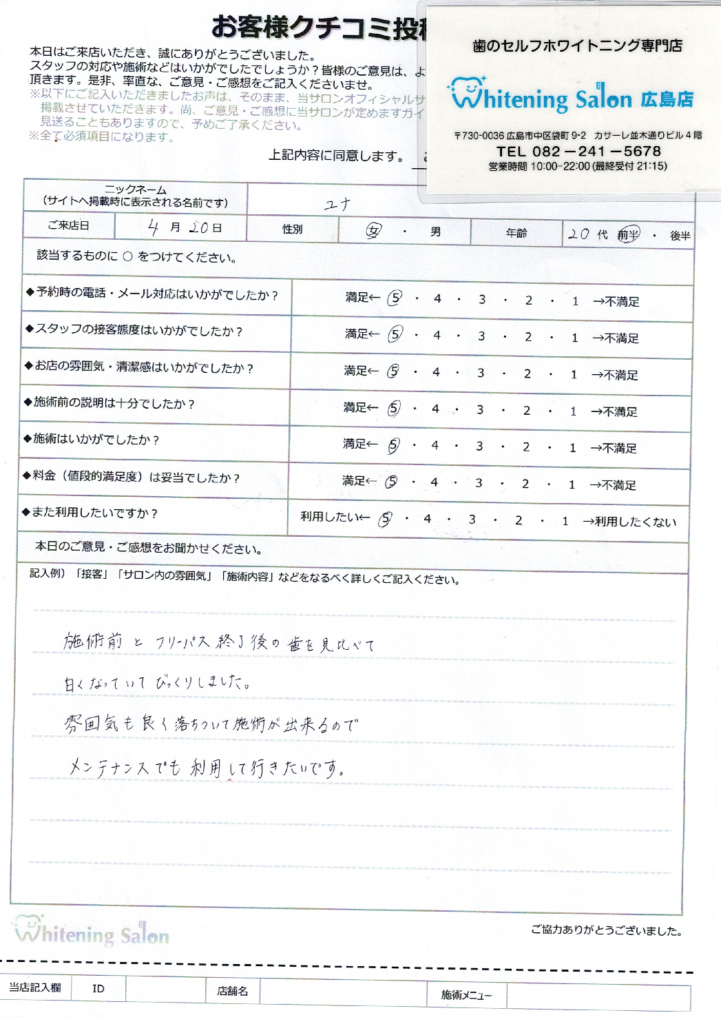 お客様クチコミ投稿
本日はご来店いただき、誠にありがとうございました。
スタッフの対応や施術などはいかがでしたでしょうか？皆様のご意見は、よ
頂きます。是非、率直な、ご意見・ご感想をご記入くださいませ。
※以下にご記入いただきましたお声は、そのまま、当サロンオフィシャルサ
掲載させていただきます。尚、ご意見・ご感想に当サロンが定めますガイ
見送ることもありますので、予めご了承ください。
※全て必須項目になります。
上記内容に同意します。
歯のセルフホワイトニング専門店
Whitening Salon 広島店
〒730-0036 広島市中区袋町 9-2 カサーレ並木通りビル 4 階
TEL 082-241-5678
営業時間 10:00-22:00 (最終受付 21:15)
ニックネーム
（サイトへ掲載時に表示される名前です） ユナ
ご来店日 4 月 20 日 性別 女 ・ 男 年齢 20 代 前半 ・ 後半
該当するものに ○ をつけてください。
◆予約時の電話・メール対応はいかがでしたか？ 満足← 5 ・ 4 ・ 3 ・ 2 ・ 1 →不満足
◆スタッフの接客態度はいかがでしたか？ 満足← 5 ・ 4 ・ 3 ・ 2 ・ 1 →不満足
◆お店の雰囲気・清潔感はいかがでしたか？ 満足← 5 ・ 4 ・ 3 ・ 2 ・ 1 →不満足
◆施術前の説明は十分でしたか？ 満足← 5 ・ 4 ・ 3 ・ 2 ・ 1 →不満足
◆施術はいかがでしたか？ 満足← 5 ・ 4 ・ 3 ・ 2 ・ 1 →不満足
◆料金（値段的満足度）は妥当でしたか？ 満足← 5 ・ 4 ・ 3 ・ 2 ・ 1 →不満足
◆また利用したいですか？ 利用したい← 5 ・ 4 ・ 3 ・ 2 ・ 1 →利用したくない
本日のご意見・ご感想をお聞かせください。
記入例）「接客」「サロン内の雰囲気」「施術内容」などをなるべく詳しくご記入ください。
施術前と フリーパス 終了後の歯を見比べて
白くなっていて びっくりしました。
雰囲気も良く落ちついて施術が出来るので
メンテナンスでも 利用して行きたいです。
Whitening Salon
ご協力ありがとうございました。
当店記入欄 ID 店舗名 施術メニュー